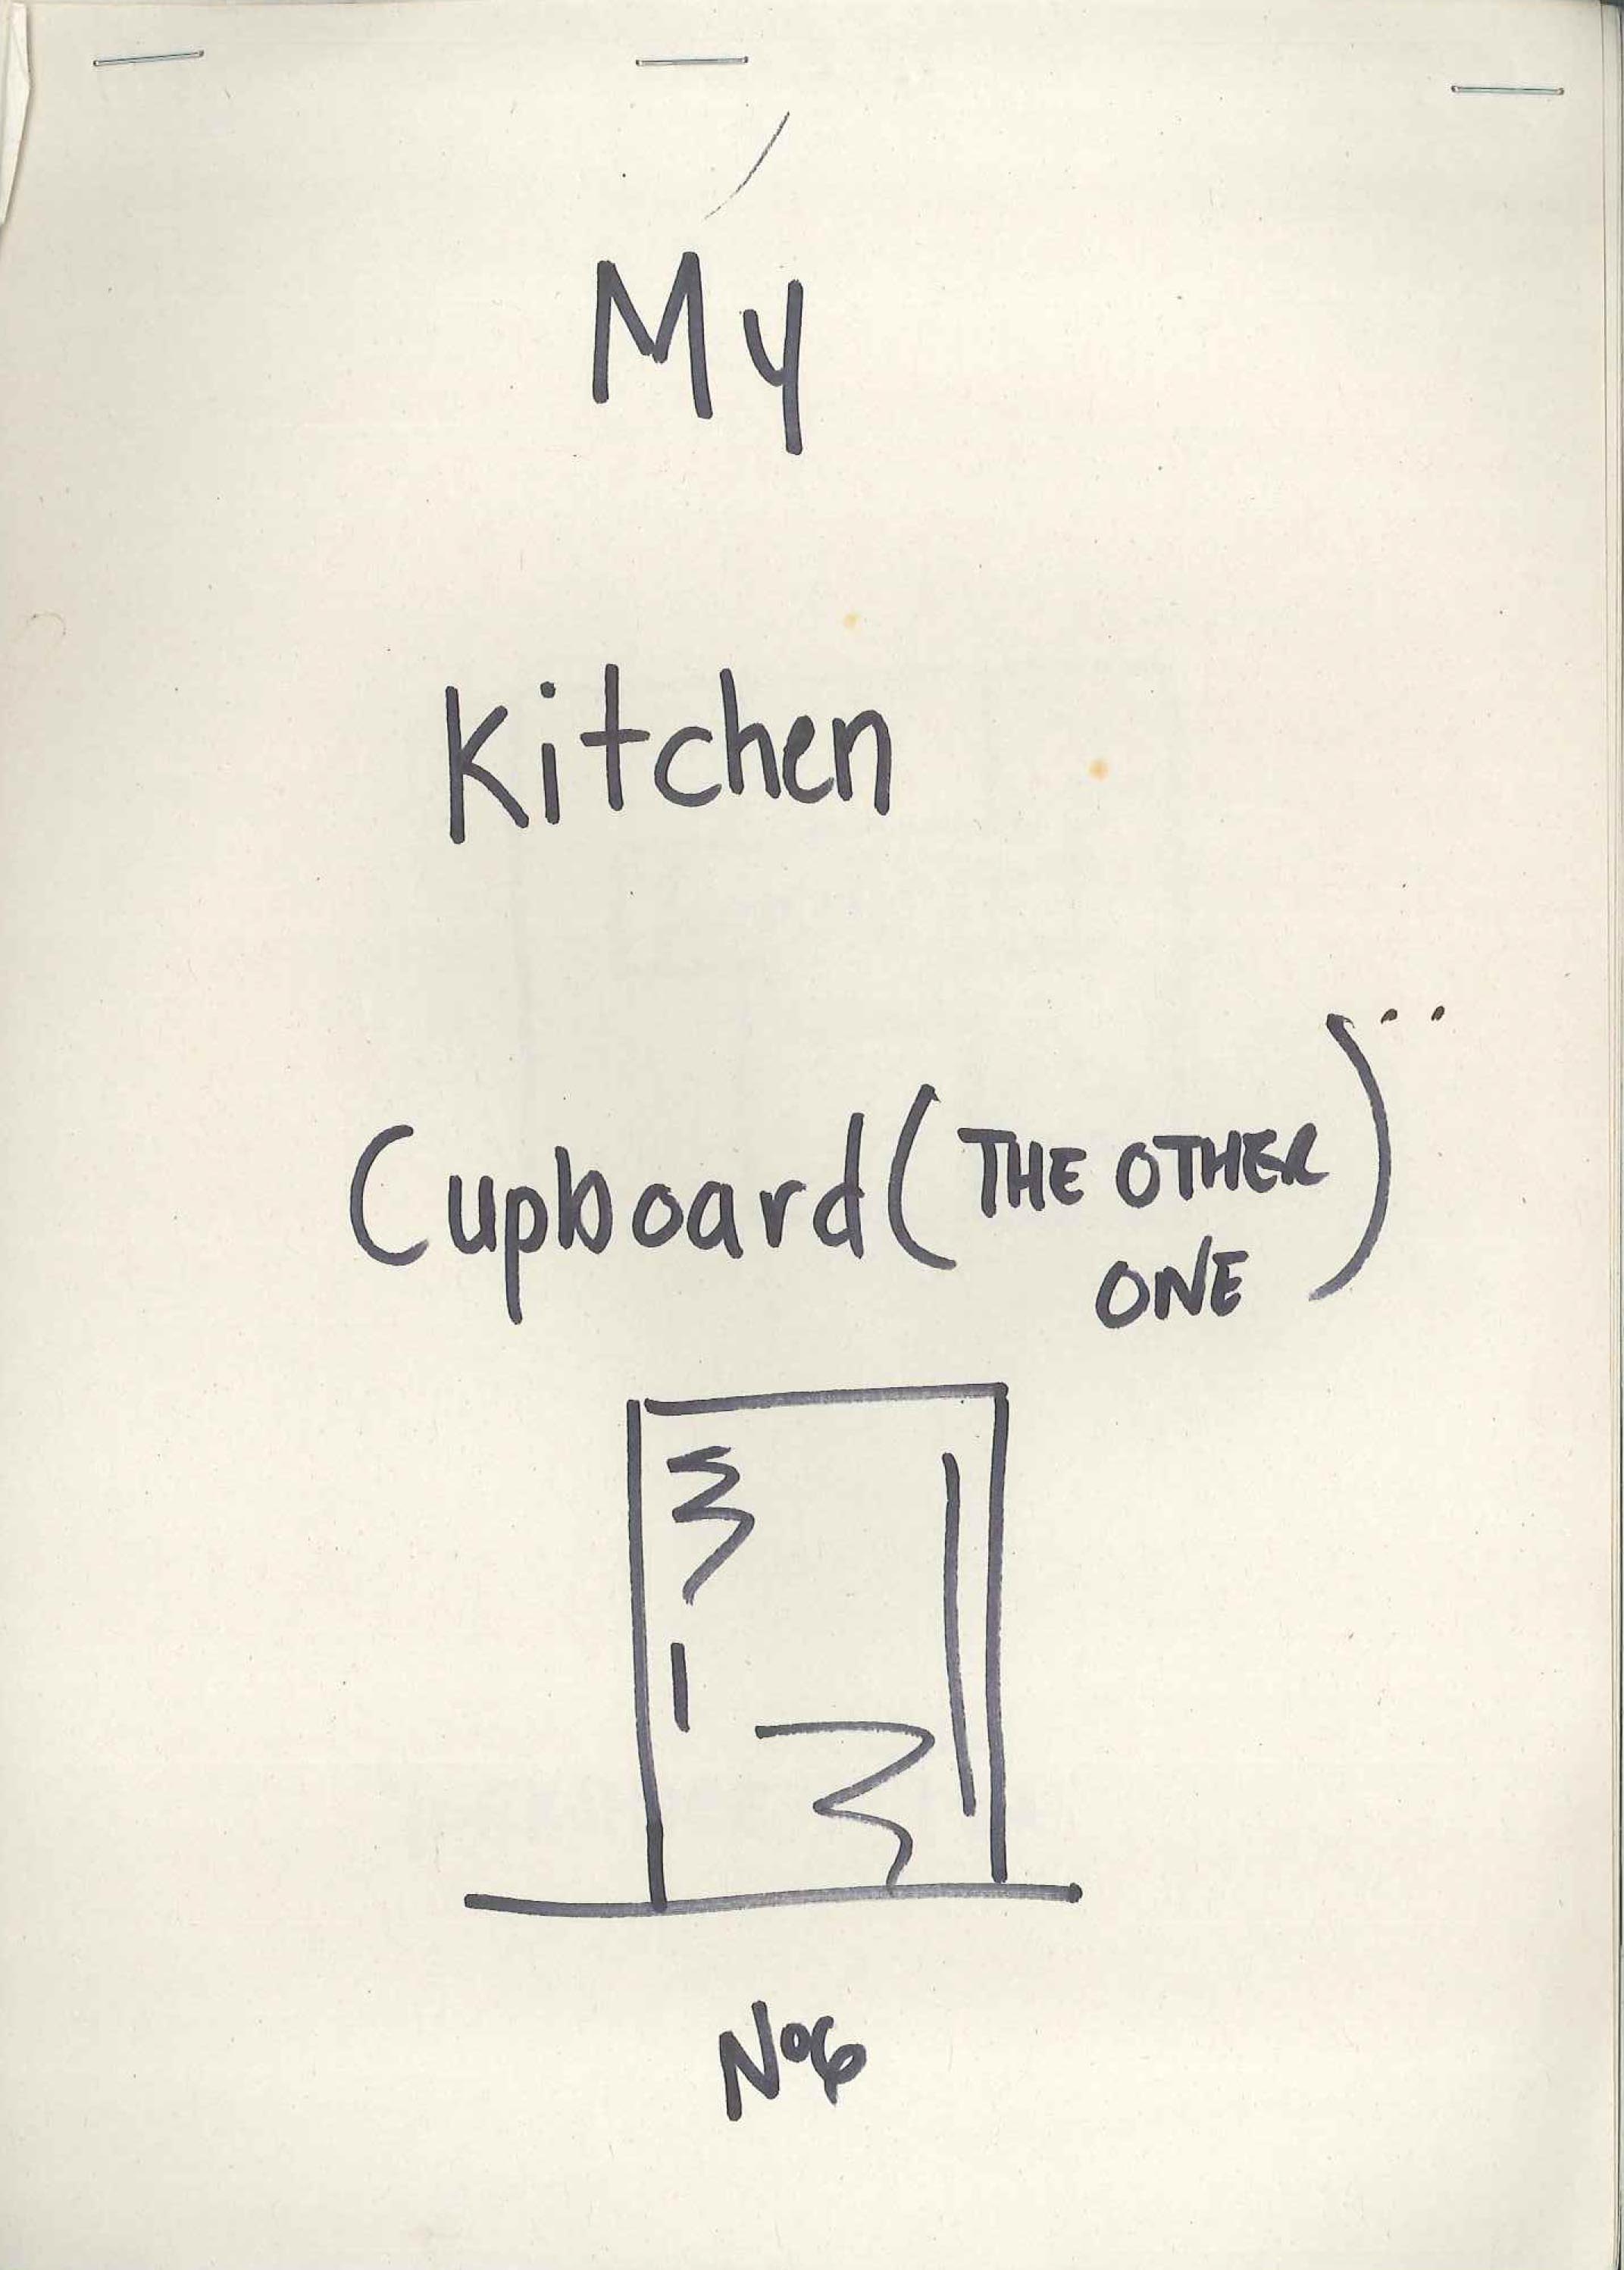 My
Kitchen
Cupboard (THE OTHER
ONE)
No6